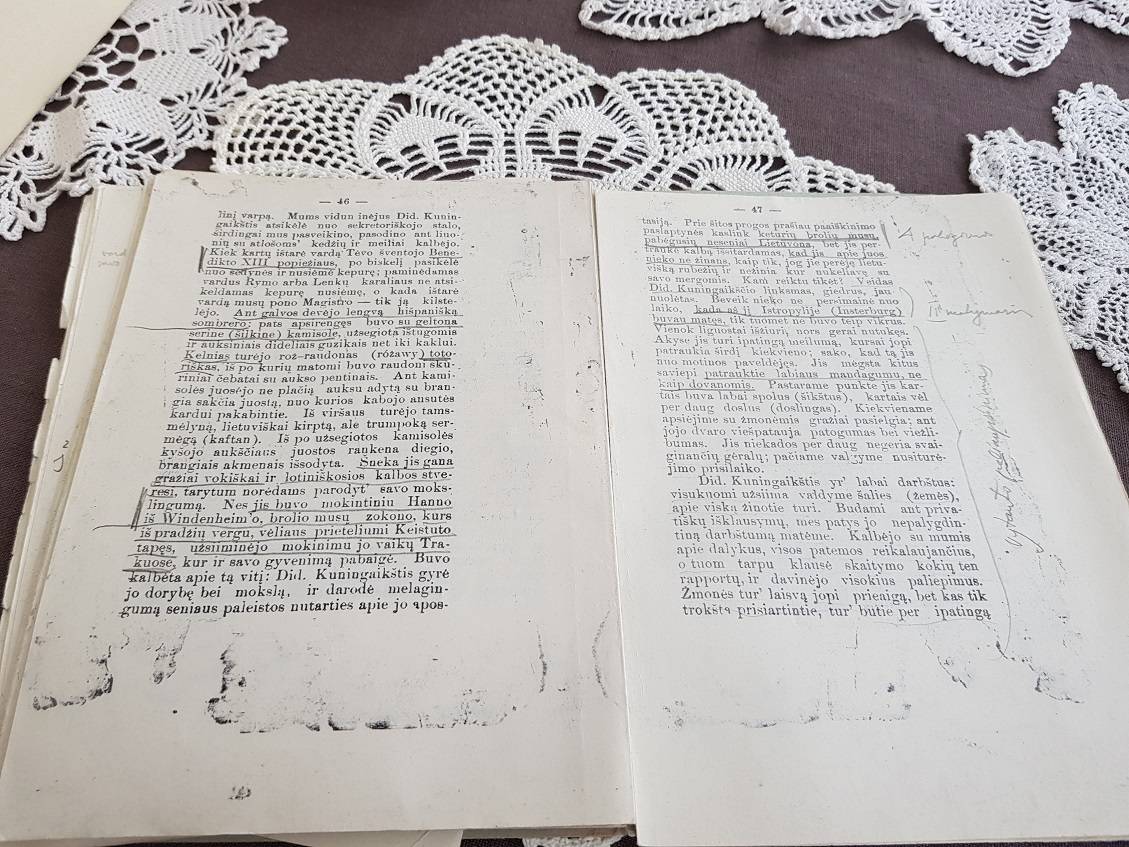 — 46 —
linį varpą. Mums vidun inėjus Did. Kunin-
gaikštis atsikėlė nuo sekretoriškojo stalo,
širdingai mus pasveikino, pasodino ant liuo-
nių su atlošoms' kedžių ir meiliai kalbėjo.
Kiek kartų ištarė vardą Tėvo šventojo Bene-
dikto XIII popiežiaus, po biskelį pasikėlė
nuo sėdynės ir nusiėmė kepurę; paminėdamas
vardus Rymo arba Lenkų karaliaus ne atsi-
keldamas kepurę nusiėmė, o kada ištarė
vardą musų pono Magistro — tik ją kilste-
lėjo. Ant galvos devėjo lengvą hišpanišką
sombrero; pats apsirengęs buvo su geltona
serine (šilkine) kamisole, užsegiota ištugomis
ir auksiniais dideliais guzikais net iki kaklui.
Kelnias turėjo rož-raudonas (różawy) toto-
riškas, iš po kurių matomi buvo raudoni sku-
riniai čebatai su aukso pentinais. Ant kami-
solės juosėjo ne plačią auksu adytą su bran-
gia sakčia juostą, nuo kurios kabojo ansutės
kardui pakabintie. Iš viršaus turėjo tams-
mėlyną, lietuviškai kirptą, ale trumpoką ser-
mėgą (kaftan). Iš po užsegiotos kamisolės
kyšojo aukščiaus juostos rankena diegio,
brangiais akmenais issodyta. Šneka jis gana
gražiai vokiškai ir lotiniškosios kalbos stve-
resi, tarytum norėdams parodyt' savo moks-
lingumą. Nes jis buvo mokintiniu Hanno
iš Windenheim'o, brolio musų zokono, kurs
iš pradžių vergu, vėliaus prieteliumi Keistuto
tapęs, užsiiminėjo mokinimu jo vaikų Tra-
kuose, kur ir savo gyvenimą pabaigė. Buvo
kalbėta apie tą vitį: Did. Kuningaikštis gyrė
jo dorybę bei mokslą, ir darodė melagin-
gumą seniaus paleistos nutarties apie jo apos-
— 47 —
taziją. Prie šitos progos prašiau paaiškinimo
paslaptynės kaslink keturių brolių musų,
pabėgusių neseniai Lietuvona, bet jis per-
traukė kalbą išsitardamas, kad jis apie juos
nieko ne žinąs, kaip tik, jog jie perėję lietu-
višką rubežių ir nežiniа kur nukeliavę su
savo mergomis. Kam reiktu tikėt? Veidas
Did. Kuningaikščio linksmas, giedrus, jau
nuolėtas. Beveik nieko ne persimainė nuo
laiko, kada aš jį Istropylije (Insterburg)
buvau matęs, tik tuomet ne buvo teip vikrus.
Vienok liguostai išžiuri, nors gerai nutukęs.
Akyse jis turi ypatingą meilumą, kursai jopi
patraukia širdį kiekvieno; sako, kad tą jis
nuo motinos paveldėjęs. Jis mėgsta kitus
saviepi patrauktie labiaus mandagumu, ne
kaip dovanomis. Pastarame punkte jis kar-
tais buva labai spolus (šikštus), kartais vėl
per daug doslus (doslingas). Kiekviename
apsiėjime su žmonėmis gražiai pasielgia; ant
jojo dvaro viešpatauja patogumas bei viežli-
bumas. Jis niekados per daug negeria svai-
ginančių gėralų; pačiame valgyme nusiturė-
jimo prisilaiko.
Did. Kuningaikštis yr' labai darbštus:
visukuomi užsiima valdyme šalies (žemės),
apie viską žinotie turi. Budami ant priva-
tiškų išklausymų, mes patys jo nepalygdin-
tiną darbštumą matėme. Kalbėjo su mumis
apie dalykus, visos patemos reikalaujančius,
o tuom tarpu klausė skaitymo kokių ten
rapportų, ir davinėjo visokius paliepimus.
Žmonės tur' laisvą jopi prieaigą, bet kas tik
trokšta prisiartintie, tur' butie per ipatingą